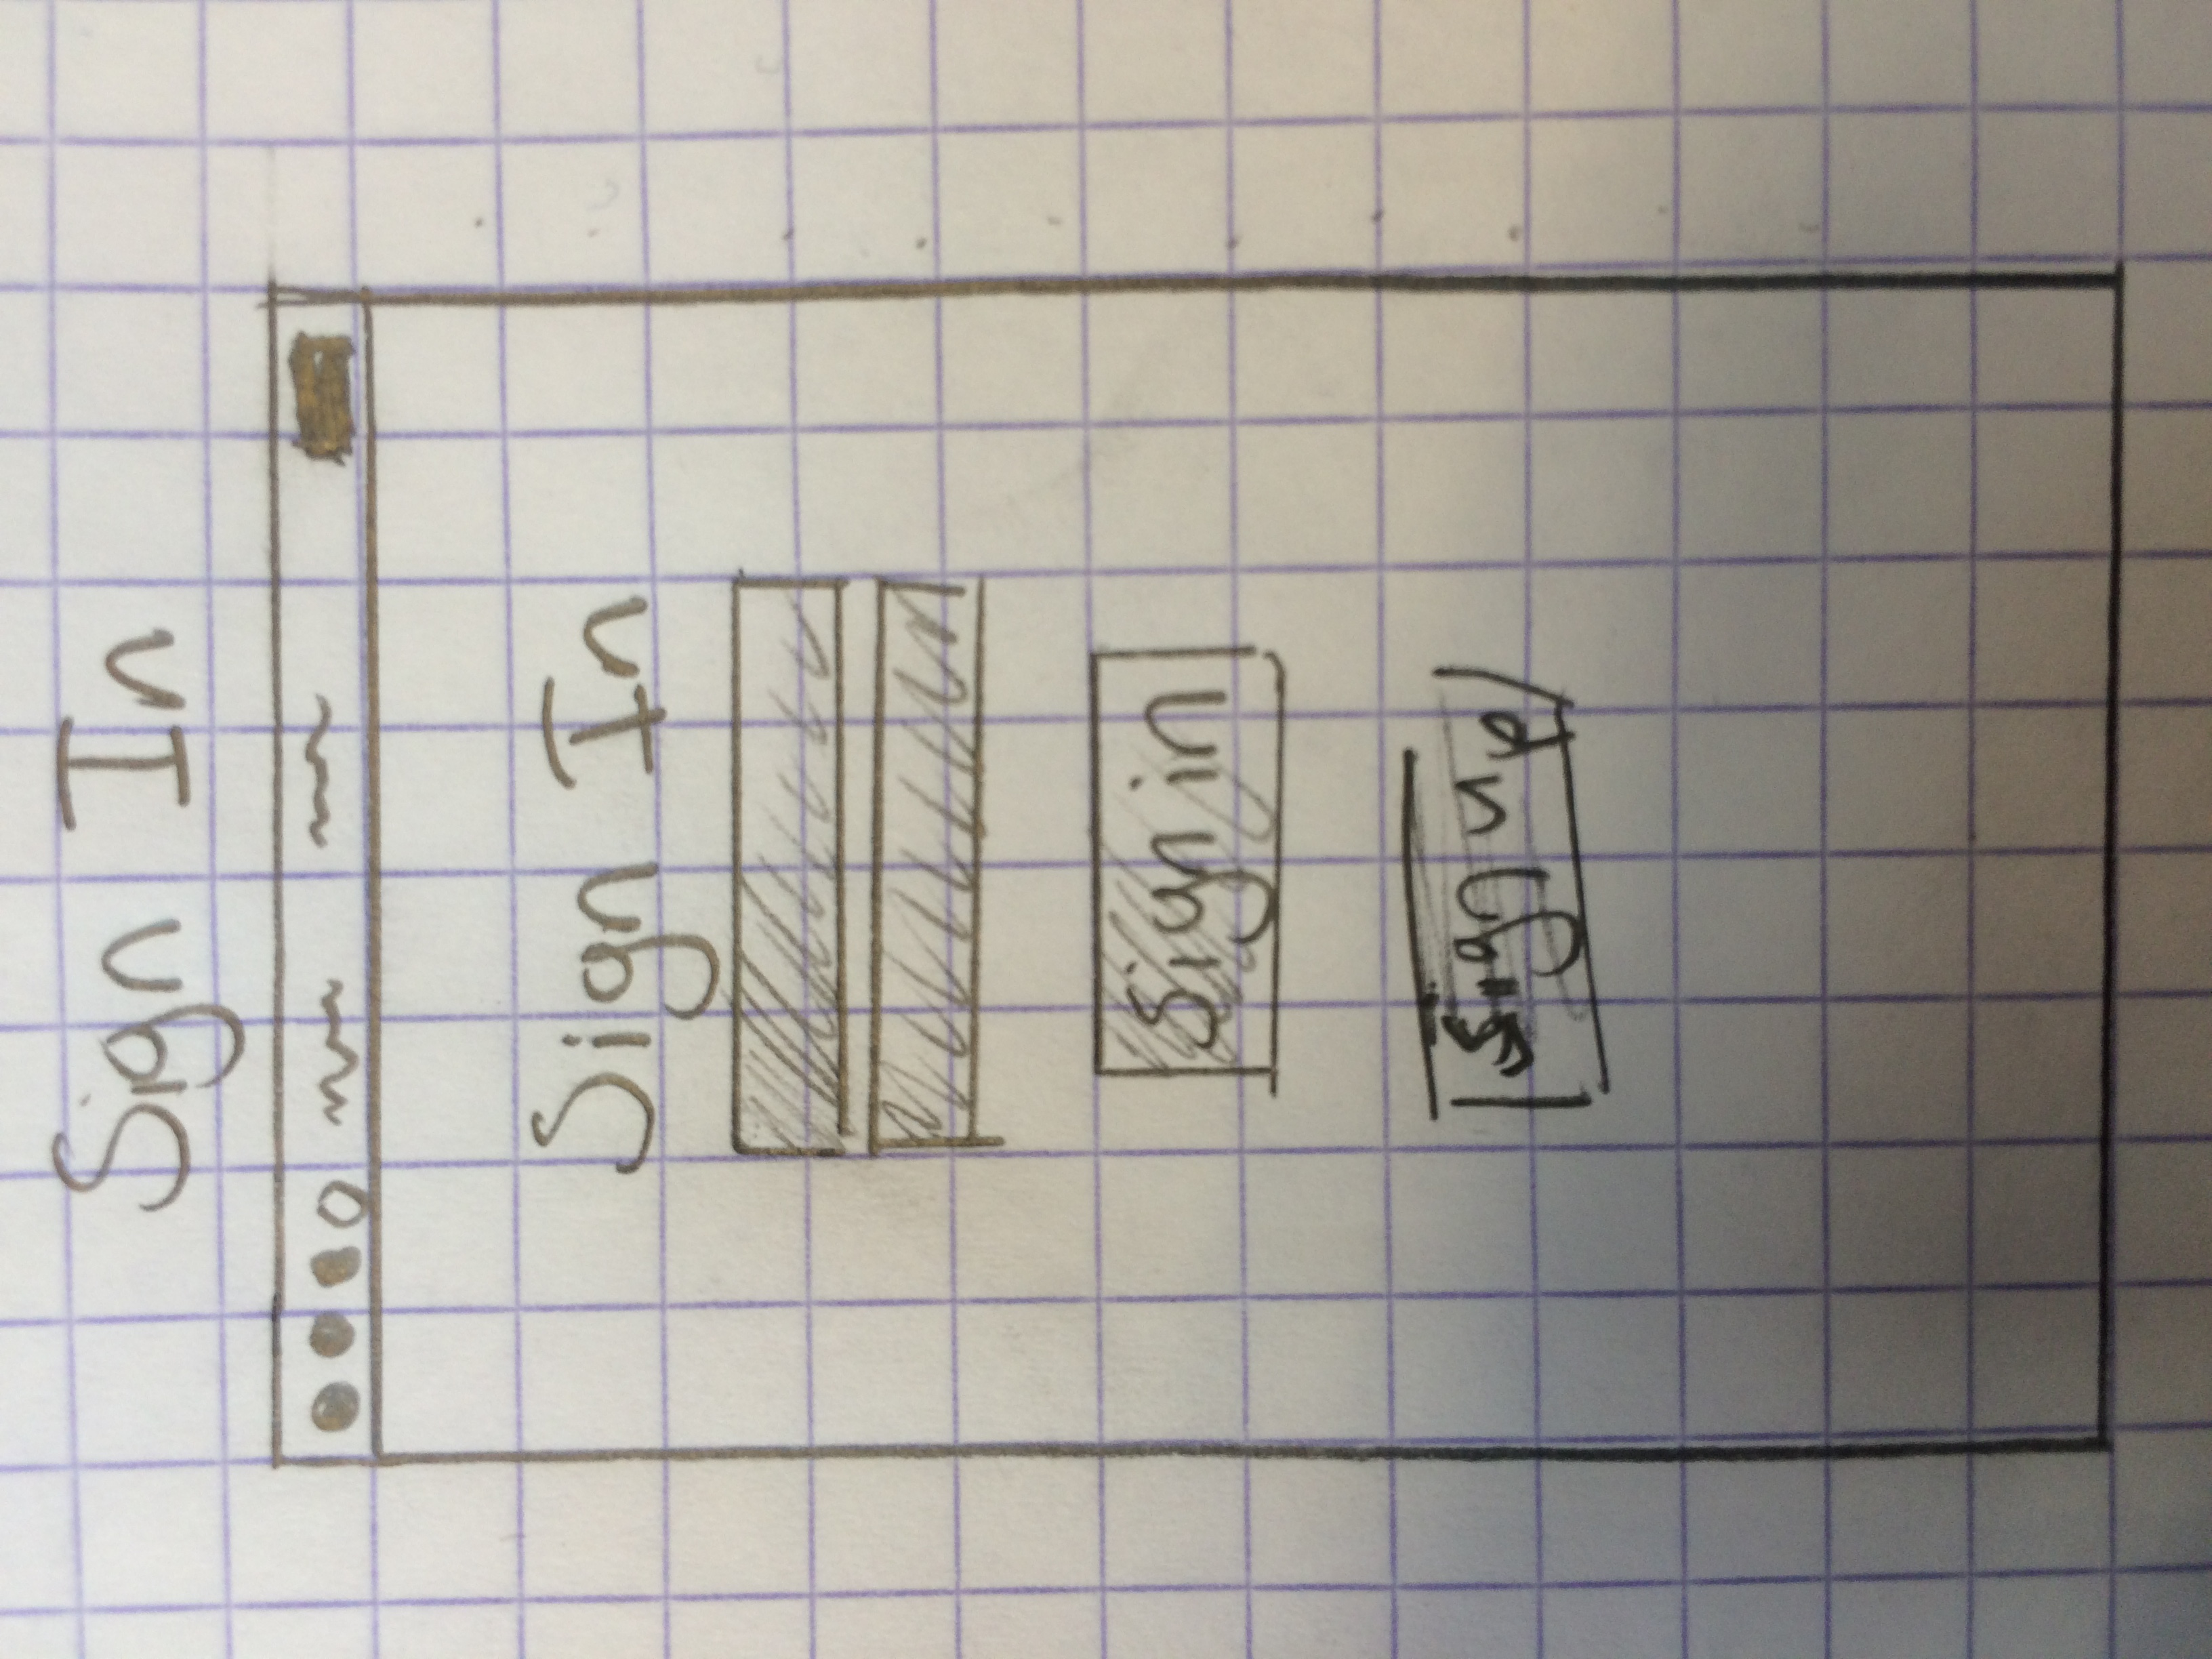 Sign In
Sign In
Sign in
Sign up